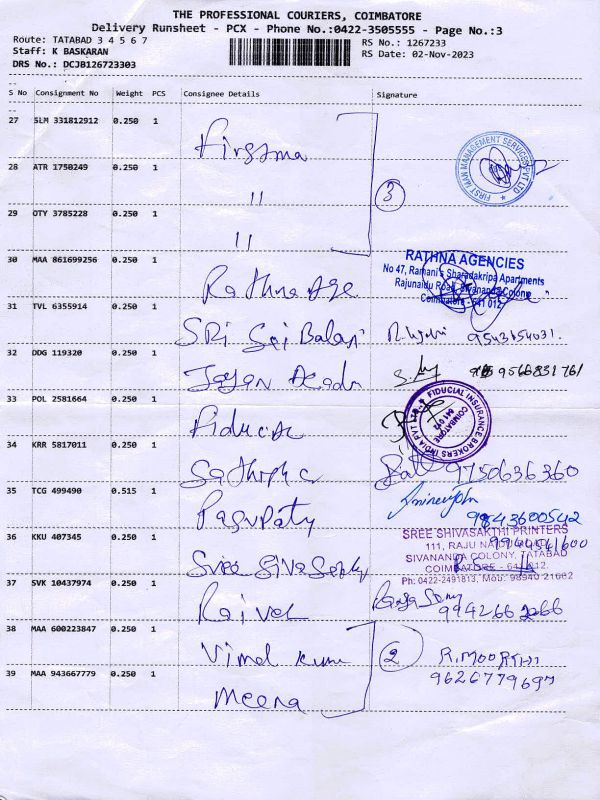 THE PROFESSIONAL COURIERS, COIMBATORE
Delivery Runsheet - PCX - Phone No.:0422-3505555 - Page No.:3
Route: TATABAD 3 4 5 6 7
Staff: K BASKARAN
DRS No.: DCJB126723303
RS No.: 1267233
RS Date: 02-Nov-2023
S No Consignment No Weight PCS Consignee Details Signature
27 SLM 331812912 0.250 1
FIRST MAN MANAGEMENT SERVICES PVT LTD
28 ATR 1750249 0.250 1 "
3
29 OTY 3785228 0.250 1 "
30 MAA 861699256 0.250 1 Rathna Age
RATHNA AGENCIES
No 47, Ramani's Sharadakripa Apartments
Rajunaidu Road, Sivananda Colony
Coimbatore - 641 012
31 TVL 6355914 0.250 1 SRi Sai Balaji
32 DDG 119320 0.250 1 9566831761
33 POL 2581664 0.250 1
FIDUCIAL INSURANCE BROKERS INDIA PVT LTD
COIMBATORE
641 012
34 KRR 5817011 0.250 1 9750636360
35 TCG 499490 0.515 1 Pasupaty
9843600542
36 KKU 407345 0.250 1
SREE SHIVASAKTHI PRINTERS
111, RAJU NAIDU ROAD, TATABAD
SIVANANDA COLONY,
COIMBATORE - 641 012
Ph: 0422-2491813, Mob: 98940 21682
37 SVK 10437974 0.250 1
38 MAA 600223847 0.250 1 Vimal Kumar
2 R.MOORTHI
9626779697
39 MAA 943667779 0.250 1 Meena